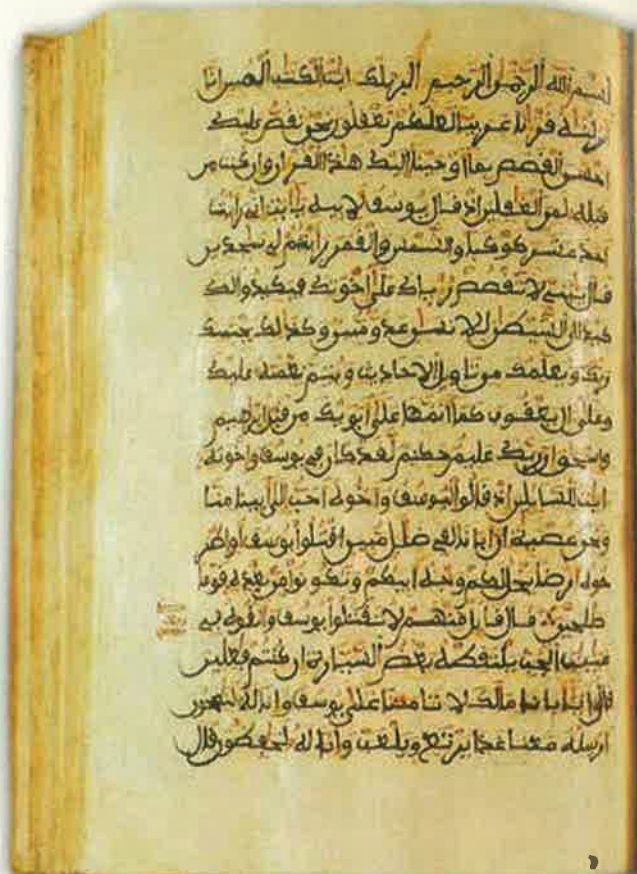 بسم الله الرحمن الرحيم الر تلك ايت الكتب المبين انا
انزلنه قرانا عربيا لعلكم تعقلون نحن نقص عليك
احسن القصص بما اوحينا اليك هذا القران وان كنت من
قبله لمن الغفلين اذ قال يوسف لابيه يابت اني رايت
احد عشر كوكبا والشمس والقمر رايتهم لي سجدين
قال يبني لا تقصص رياك على اخوتك فيكيدوا لك
كيدا ان الشيطن للانسن عدو مبين وكذلك يجتبيك
ربك ويعلمك من تاويل الاحاديث ويتم نعمته عليك
وعلى ال يعقوب كما اتمها على ابويك من قبل ابرهيم
واسحق ان ربك عليم حكيم لقد كان في يوسف واخوته
ايت للسايلين اذ قالوا ليوسف واخوه احب الى ابينا منا
ونحن عصبة ان ابانا لفي ضلل مبين اقتلوا يوسف او اطر
حوه ارضا يخل لكم وجه ابيكم وتكونوا من بعده قوما
صلحين قال قايل منهم لا تقتلوا يوسف والقوه في
غيبت الجب يلتقطه بعض السيارة ان كنتم فعلين
قالوا يابانا مالك لا تامنا على يوسف وانا له لنصحون
ارسله معنا غدا يرتع ويلعب وانا له لحفظون قال